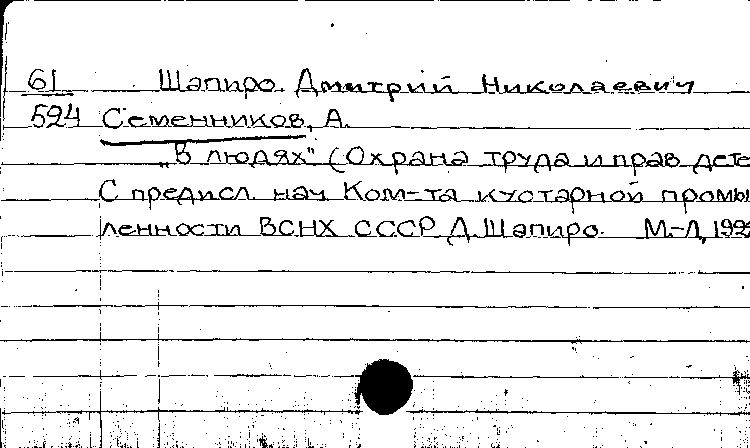 61 Шапиро. Дмитрий Николаевич
524 Семенников, А.
„В людях" (Охрана труда и прав дете
С предисл. нач. Ком-та кустарной промы
ленности ВСНХ СССР Д. Шапиро. М.-Л, 192